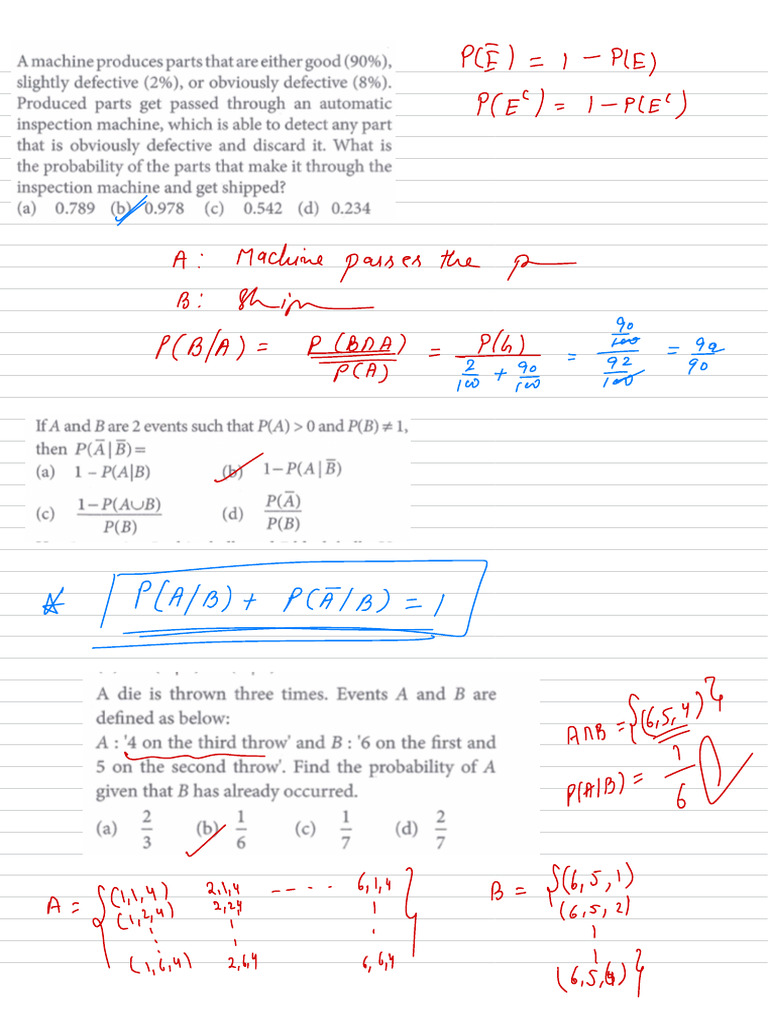 A machine produces parts that are either good (90%),
slightly defective (2%), or obviously defective (8%).
Produced parts get passed through an automatic
inspection machine, which is able to detect any part
that is obviously defective and discard it. What is
the probability of the parts that make it through the
inspection machine and get shipped?
(a) 0.789 (b) 0.978 (c) 0.542 (d) 0.234
P(Ē) = 1 - P(E)
P(Eᶜ) = 1 - P(Eᶜ)
A: Machine passes the p
B: Ship
P(B/A) = P(B∩A)/P(A) = P(G)/(2/100 + 90/100) = (90/100)/(92/100) = 90/90
If A and B are 2 events such that P(A) > 0 and P(B) ≠ 1,
then P(Ā|B̄) =
(a) 1 – P(A|B) (b) 1 – P(A|B̄)
(c) 1–P(A∪B)/P(B) (d) P(Ā)/P(B)
P(A/B) + P(Ā/B) = 1
A die is thrown three times. Events A and B are
defined as below:
A : '4 on the third throw' and B : '6 on the first and
5 on the second throw'. Find the probability of A
given that B has already occurred.
(a) 2/3 (b) 1/6 (c) 1/7 (d) 2/7
A∩B = {(6,5,4)}
P(A|B) = 1/6
A = {(1,1,4) 2,1,4 ---- 6,1,4
(1,2,4) 2,2,4
(1,6,4) 2,6,4 6,6,4}
B = {(6,5,1)
(6,5,2)
(6,5,6)}